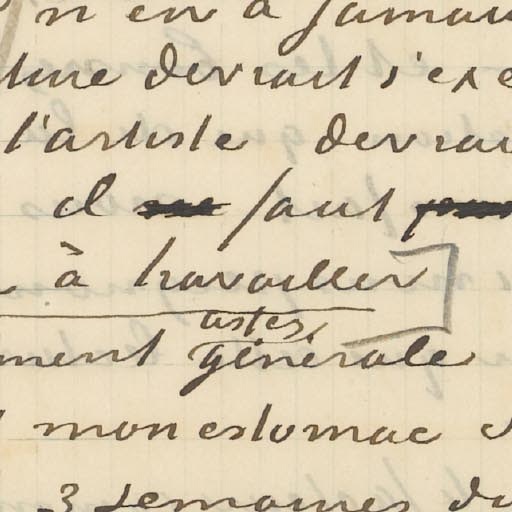 n en a jamais
devrait s'exe
l'artiste devrai
il faut
à travailler
astes
ment générale
mon estomac
3 semaines du